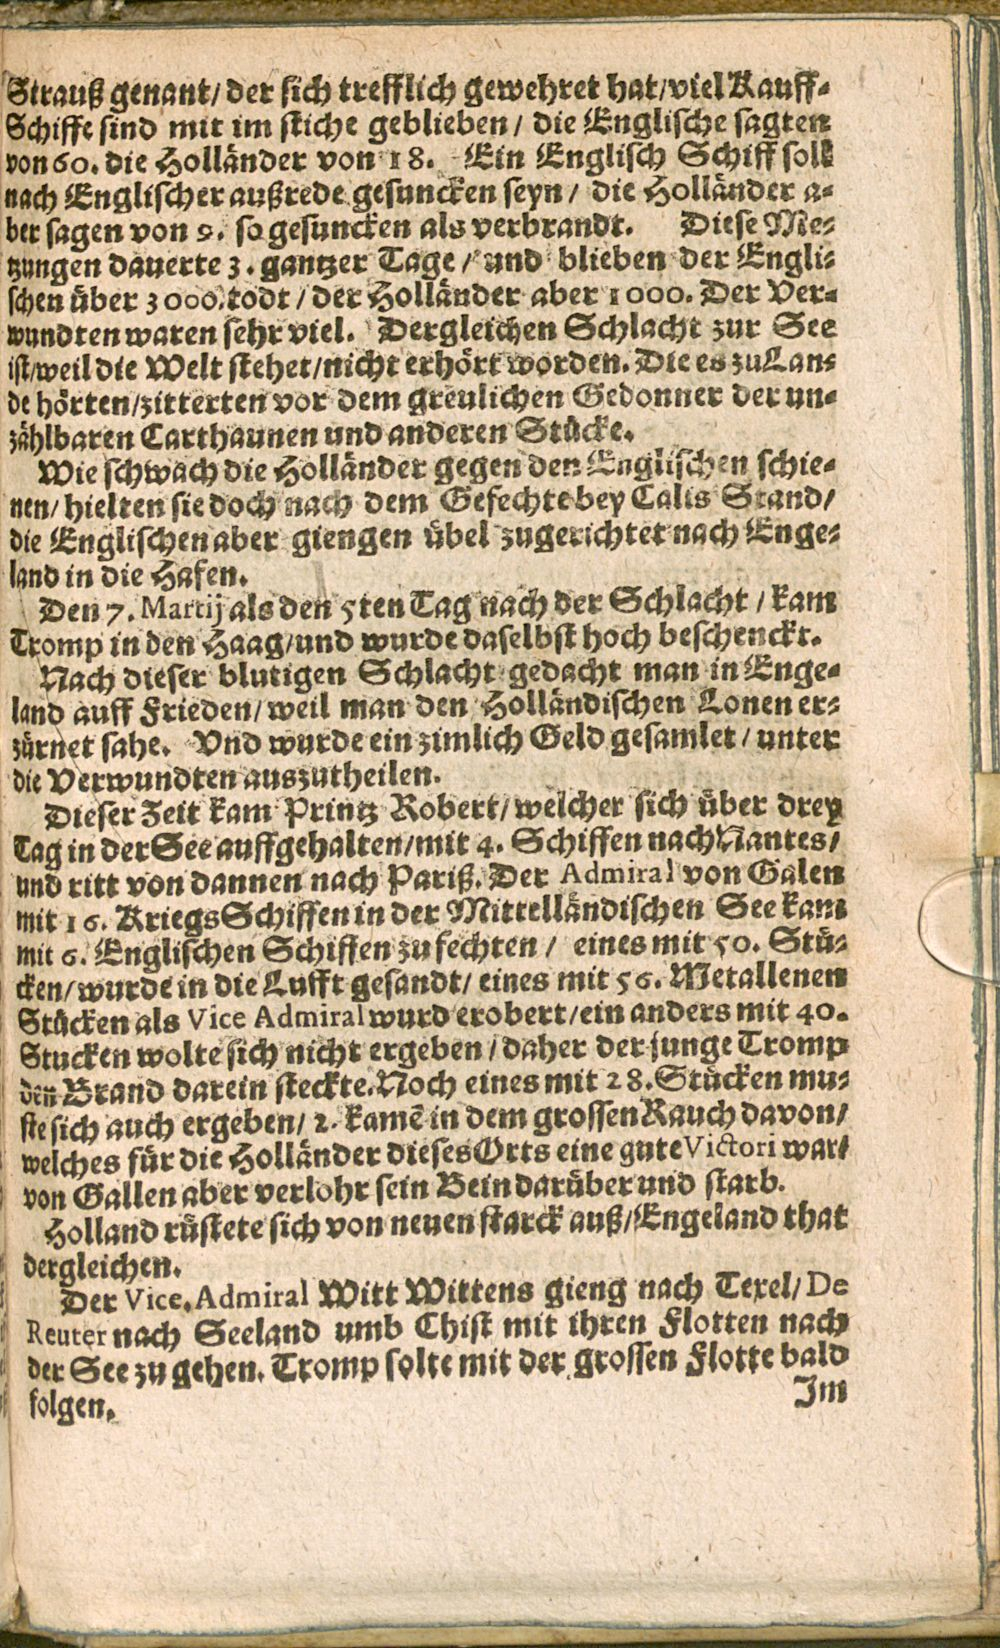 Strauß genant/ der sich trefflich gewehret hat/ viel Kauff-
Schiffe sind mit im stiche geblieben / die Englische sagten
von 60. die Holländer von 18. Ein Englisch Schiff soll
nach Englischer außrede gesuncken seyn / die Holländer a-
ber sagen von 9. so gesuncken als verbrandt. Diese Me-
tzungen dauerte 3. gantzer Tage / und blieben der Engli-
schen über 3000. todt / der Holländer aber 1000. Der Ver-
wundten waren sehr viel. Dergleichen Schlacht zur See
ist/ weil die Welt stehet/ nicht erhört worden. Die es zu Lan-
de hörten/ zitterten vor dem greulichen Gedonner der un-
zählbaren Carthaunen und anderen Stücke.
Wie schwach die Holländer gegen den Englischen schie-
nen/ hielten sie doch nach dem Gefechte bey Calis Stand/
die Englischen aber giengen übel zugerichtet nach Enge-
land in die Hafen.
Den 7. Martij als den 5ten Tag nach der Schlacht / kam
Tromp in den Haag/ und wurde daselbst hoch beschenckt.
Nach dieser blutigen Schlacht gedacht man in Enge-
land auff Frieden/ weil man den Holländischen Lonen er-
zürnet sahe. Vnd wurde ein zimlich Geld gesamlet / unter
die Verwundten auszutheilen.
Dieser Zeit kam Printz Robert/ welcher sich über drey
Tag in der See auffgehalten/ mit 4. Schiffen nach Nantes/
und ritt von dannen nach Pariß. Der Admiral von Galen
mit 16. KriegsSchiffen in der Mittelländischen See kam
mit 6. Englischen Schiffen zu fechten / eines mit 50. Stü-
cken/ wurde in die Lufft gesandt/ eines mit 56. Metallenen
Stücken als Vice Admiral wurd erobert/ ein anders mit 40.
Stucken wolte sich nicht ergeben / daher der junge Tromp
den Brand darein steckte. Noch eines mit 28. Stücken mu-
ste sich auch ergeben/ 2. kamē in dem grossen Rauch davon/
welches für die Holländer dieses Orts eine gute Victori war/
von Gallen aber verlohr sein Bein darüber und starb.
Holland rüstete sich von neuen starck auß/ Engeland that
dergleichen.
Der Vice. Admiral Witt Wittens gieng nach Texel/ De
Reuter nach Seeland umb Chist mit ihren Flotten nach
der See zu gehen. Tromp solte mit der grossen Flotte bald
folgen.
Im